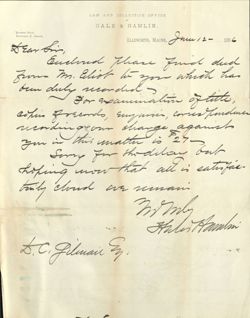 LAW AND COLLECTION OFFICE
OF
HALE & HAMLIN.
ELLSWORTH, MAINE, June 12 - 1886
Dear Sir,
Enclosed please find deed
from Mr. Eliot to you which has
been duly recorded.
For examination of title,
copies of records, correspondence
recording our charge against
you in this matter is $27
Sorry for the delay but
hoping now that all is satisfac-
torily closed we remain
Yrs truly
Hale & Hamlin
D. C. Gilman Esq.